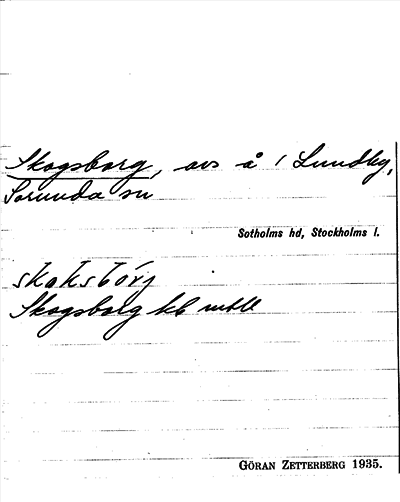 Skogsborg, avs å 1 Lundby,
Sorunda sn
Sotholms hd, Stockholms l.
skoksbórj
Skogsborg kb
GÖRAN ZETTERBERG 1935.